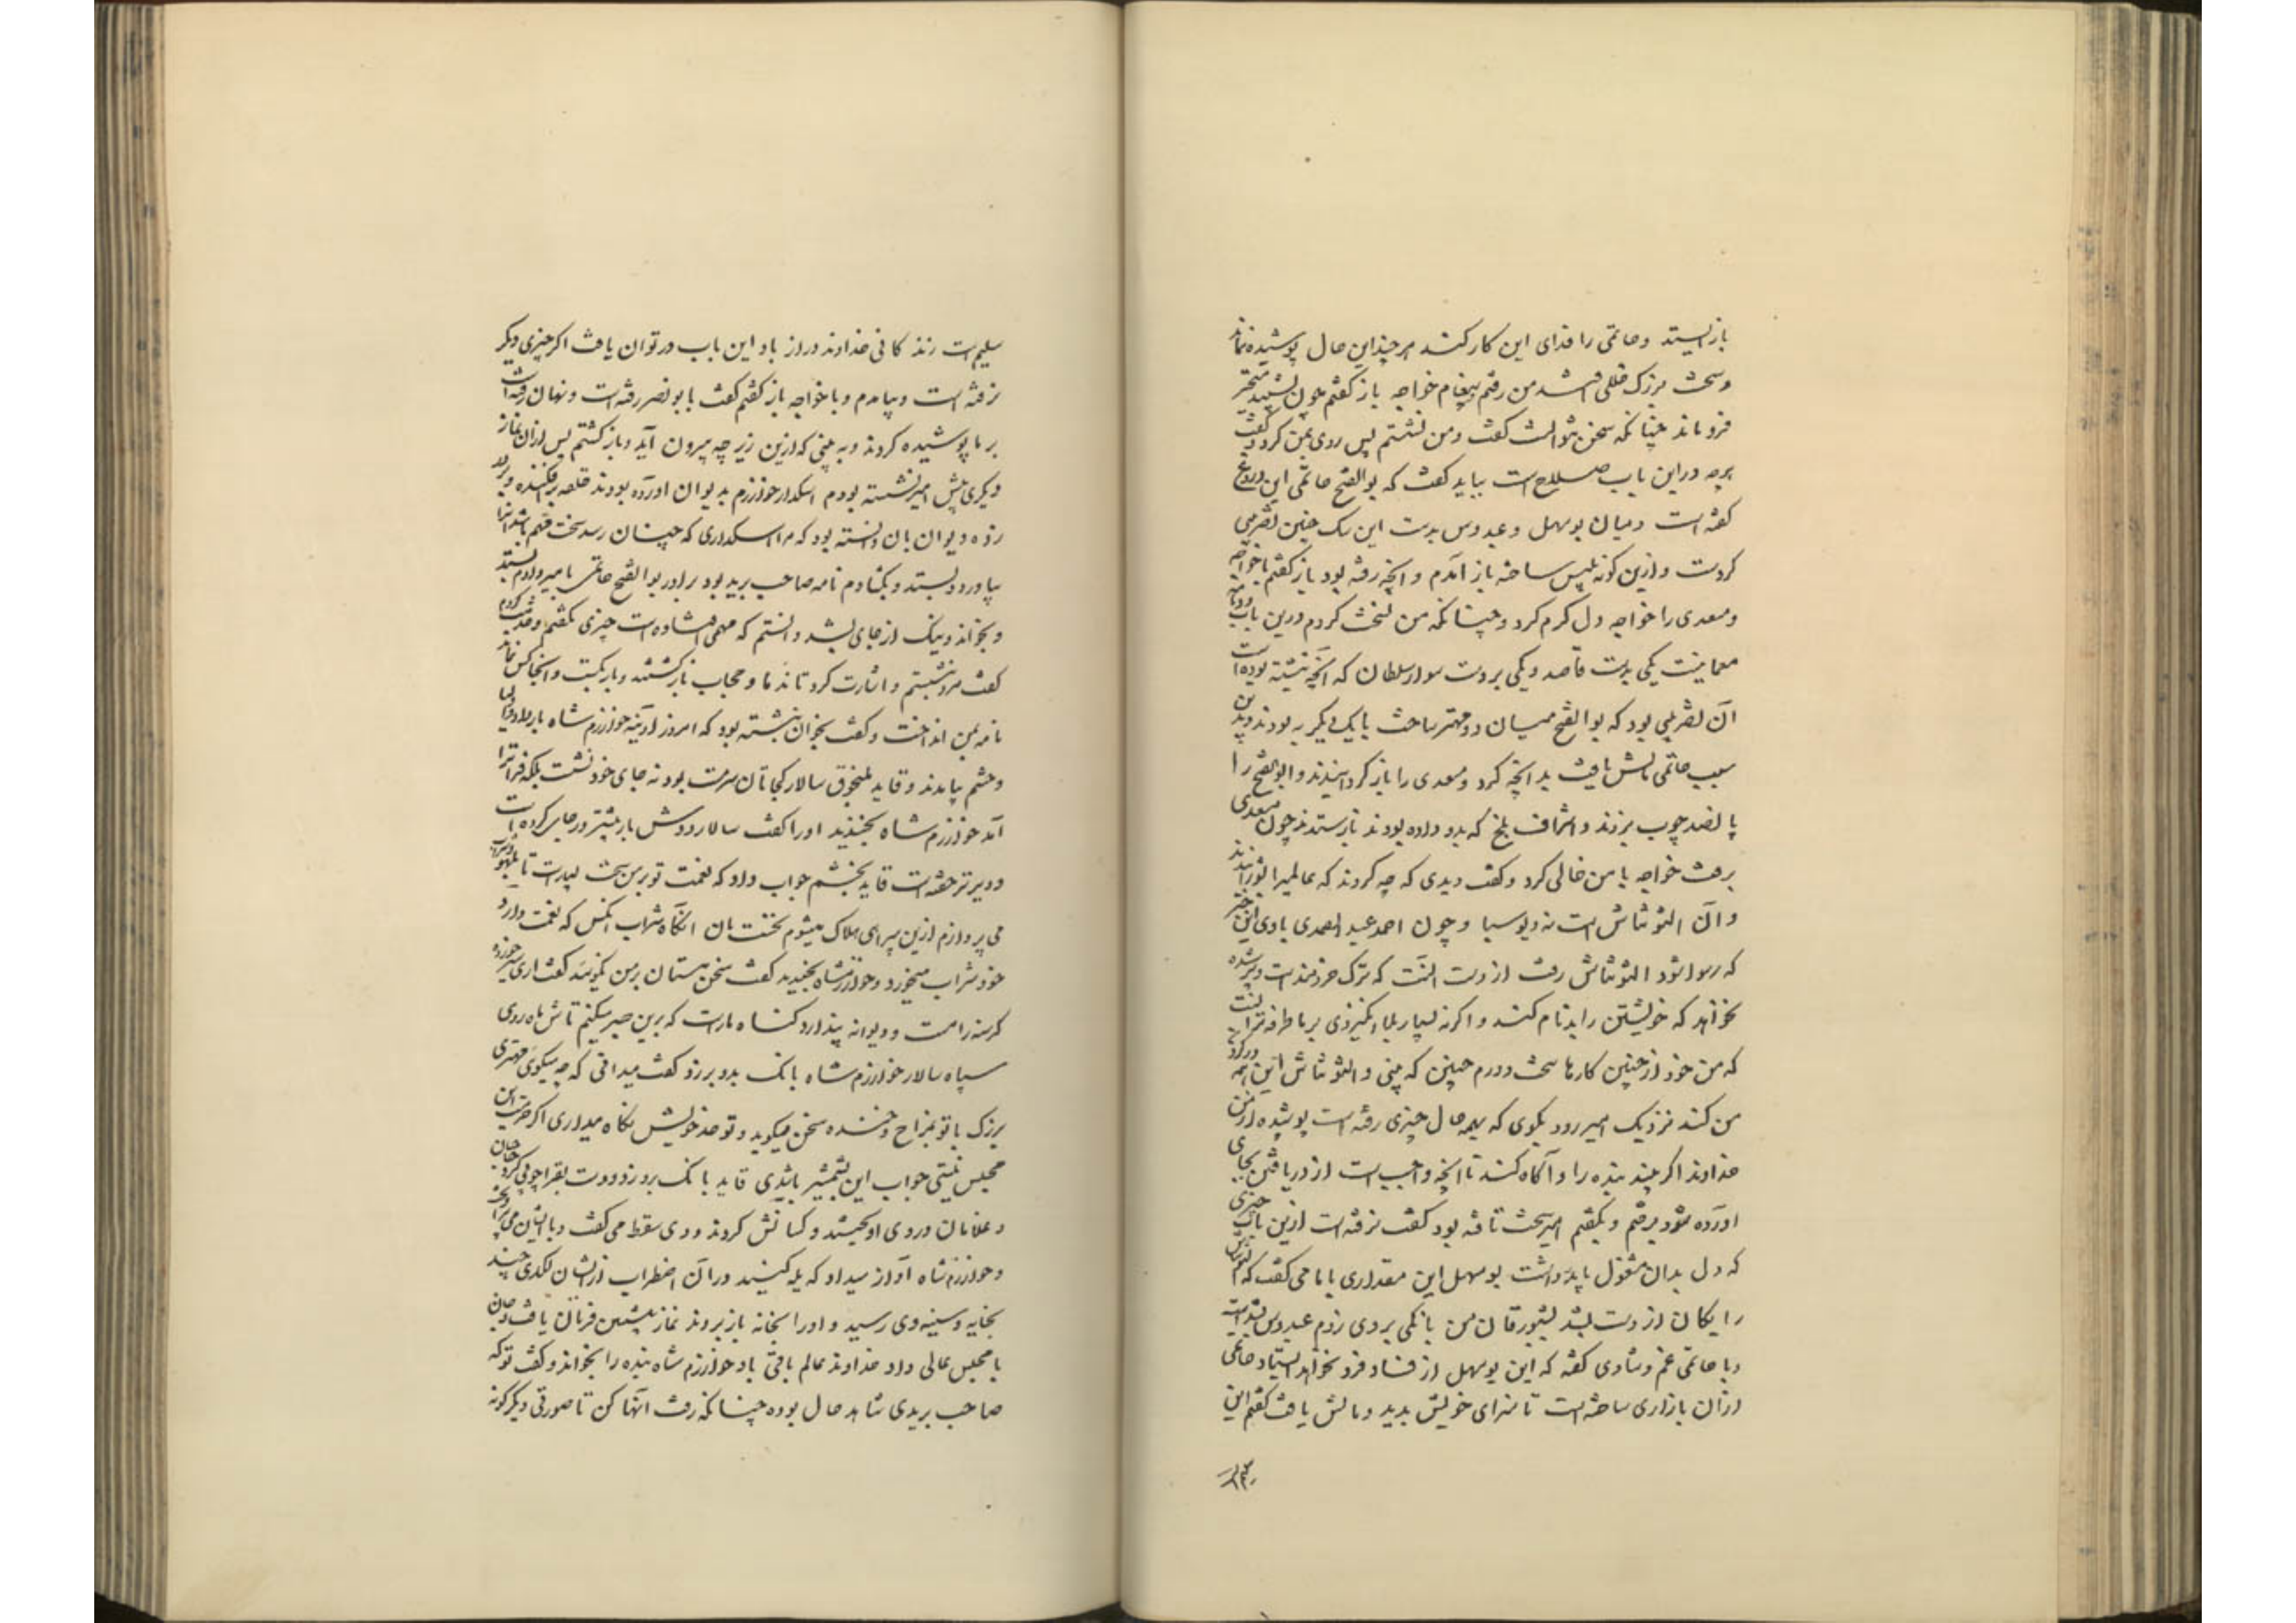 باز ایستد و حاتمی را فدای این کار کنند هر چند این حال پوشیده نماند
و سخت بزرگ خللی افتد من رفتم پیغام خواجه باز گفتم چون بشنید متحیر
فرو ماند چنانکه سخن نتوانست گفت و من نشستم پس روی بمن کرد و گفت
هرچه در این باب صلاح است بباید گفت که بوالفتح حاتمی این دروغ
گفته است و میان بوسهل و عبدوس بدست این سک چنین تضریبی
کردست و ازین گونه تلبیس ساخته باز آمدم و آنچه رفته بود باز گفتم با خواجه
و مسعدی را خواجه دل گرم کرد و چنانکه من نسخت کردم درین باب دو نامه
معما نبشت یکی بدست قاصد و یکی بر دست سوار سلطان که آنچه نبشته بوده است
آن تضریبی بود که بوالفتح میان دو مهتر ساخت با یک دیگر بد بودند و بدین
سبب حاتمی مالش یافت بدانچه کرد و مسعدی را باز گردانیدند و ابوالفتح را
پانصد چوب بزدند و اشراف بلخ که بدو داده بودند باز ستدند چون مسعدی
برفت خواجه با من خالی کرد و گفت دیدی که چه کردند که عالمیرا بشورانیدند
و آن التونتاش است نه دیوسیا و چون احمد عبد الصمدی با وی این خبر
که رسوا شود التونتاش رفت از دست آنست که ترک خردمند است و پیر شده
نخواهد که خویشتن را بدنام کند و اگرنه بسیار بلا انگیزدی بر ما طرفه تر آنست
که من خود از چنین کارها سخت دورم چنین که بینی و التونتاش این همه در گردن
من کند نزدیک امیر رود بکوی که بهمه حال چیزی رفته است پوشیده از من
خداوند اگر بیند بنده را و آگاه کند تا آنچه واجب است از دریافتن بجای
آورده شود برفتم و بگفتم امیر سخت تافته بود گفت نرفته است ازین باب چیزی
که دل بدان مشغول باید داشت بوسهل این مقداری با ما می گفت که التونتاش
رایکان از دست بشد بشبورقان من بانگی بر وی زدم عبدوس بشنیده است
و با حاتمی غم و شادی گفته که این بوسهل از فساد فرو نخواهد ایستاد حاتمی
از آن بازاری ساخته است تا سزای خویش بدید و مالش یافت گفتم این
سلیم است زندگانی خداوند دراز باد این باب در توان یافت اگر چیزی دیگر
نرفته است و بیامدم و با خواجه باز گفتم گفت با بونصر رفته است و نهان رفته است
بر ما پوشیده کردند و به بینی که ازین زیر چه بیرون آید و باز گشتم پس از آن نماز
دیگری پیش امیر نشسته بودم اسکدار خوارزم بدیوان آورده بودند حلقه برافکنده و بر در
زده دیوان بان دانسته بود که هر اسکداری که چنان رسد سخت مهم باشد آنرا
بیاورد و بستد و بگشادم نامه صاحب برید بود برادر بوالفتح حاتمی بامیر دادم بستد
و بخواند و نیک از جای بشد دانستم که مهمی افتاده است چیزی نگفتم و خدمت کردم
گفت مرو نشستم و اشارت کرد تا ندما و حجاب باز گشتند و بار بگسست و آنجا کس نماند
نامه بمن انداخت و گفت بخوان نبشته بود که امروز آدینه خوارزم شاه بار داد و اولیا
و حشم بیامدند و قاید ملنجوق سالار کجاتان سرمست بود نه جای خود نشست بلکه فراتر
آمد خوارزم شاه بخندید او را گفت سالار دوش بار بیشتر در جای کرده است
و دیرتر خفته است قاید بخشم جواب داد که نعمت تو بر من سخت بسیار است تا بلهو و شراب
می پردازم ازین بیراهی هلاک میشوم نخست نان آنگاه شراب آنکس که نعمت دارد
خود شراب میخورد و خوارزمشاه بخندید گفت سخن مستان بر من مگویید گفت آری سیر خورده
گرسنه را مست و دیوانه پندارد گناه ماراست که برین صبر میکنیم تاش ماه روی
سپاه سالار خوارزم شاه بانک بدو بر زد گفت میدانی که چه میگویی مهتری
بزرگ با تو بمزاح و خنده سخن میگوید و تو حد خویش نگاه میداری اگر حرمت این
مجلس نیستی جواب این بشمشیر باشدی قاید بانک برو زد و دست بقراچولی کرد حاجبان
و غلامان در وی آویختند و کشاکش کردند و وی سقط می گفت و با ایشان می برآویخت
و خوارزمشاه آواز میداد که یله کنید در آن اضطراب از ایشان لگدی چند
بخایه و سینه وی رسید و او را بخانه باز بردند نماز پیشین فرمان یافت و جان
با مجلس عالی داد خداوند عالم باقی باد خوارزم شاه بنده را بخواند و گفت تو که
صاحب بریدی شاهد حال بوده چنانکه رفت انها کن تا صورتی دیگرگونه